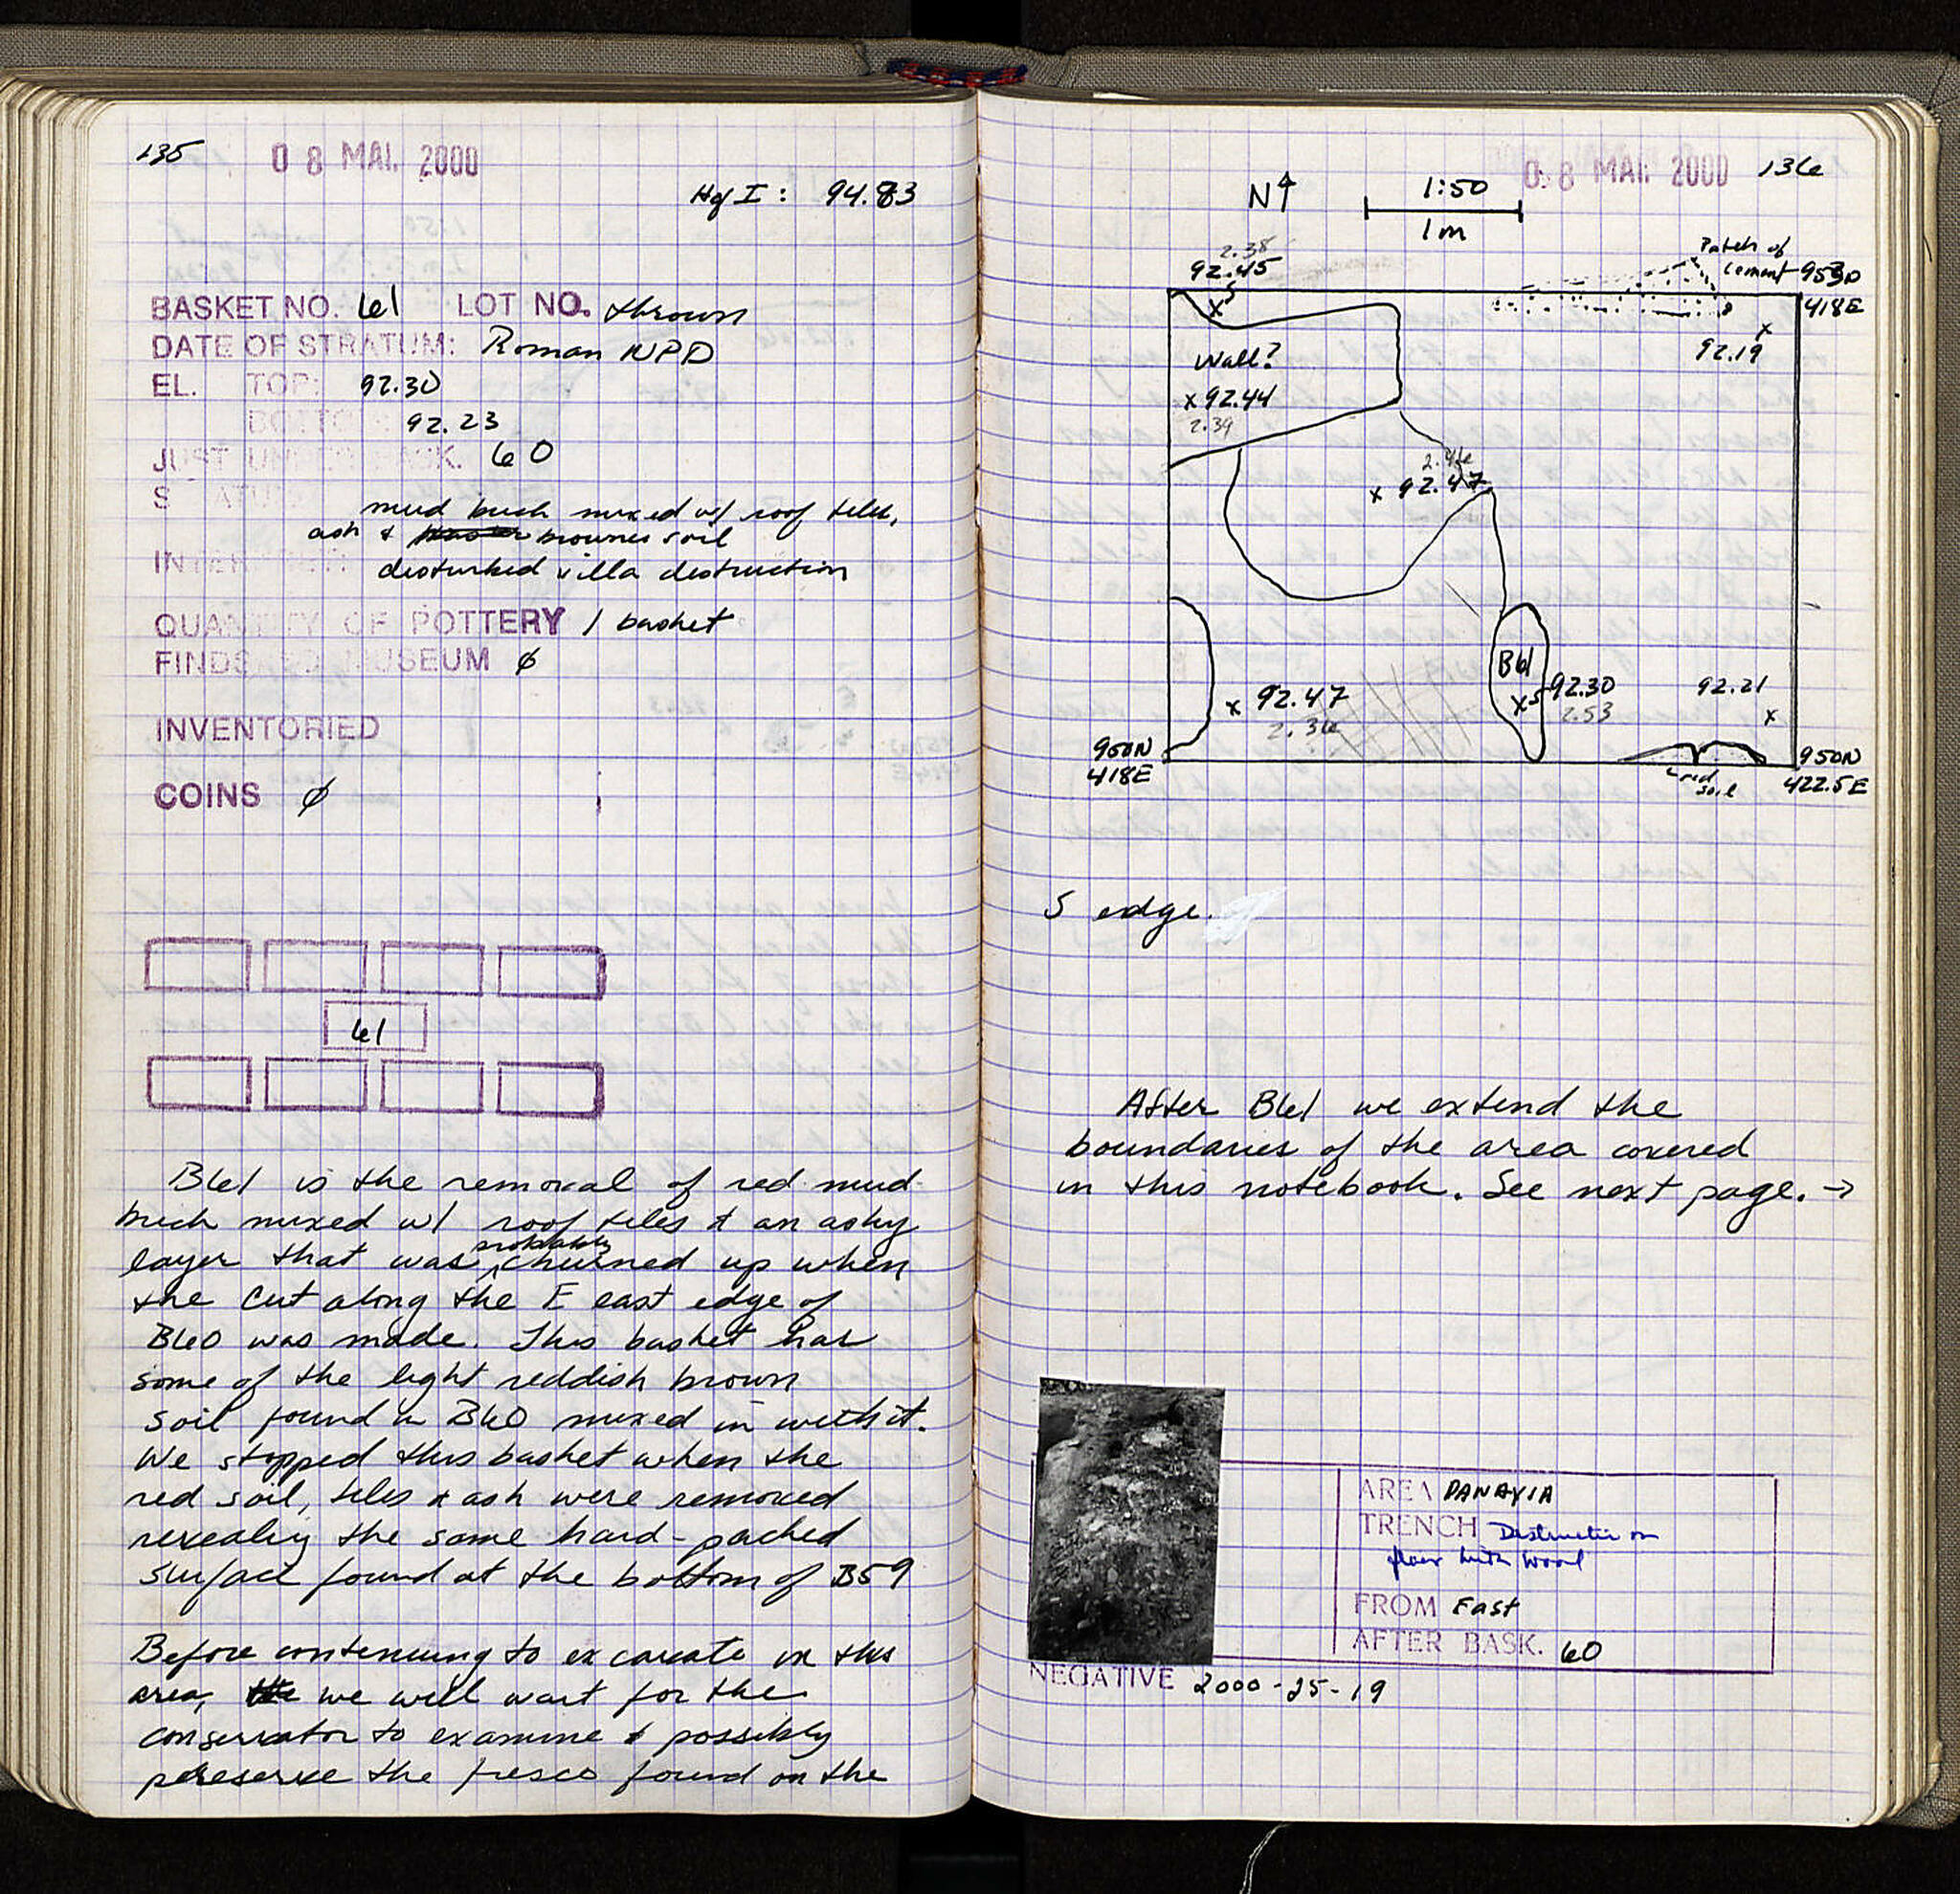 135 08 MAI. 2000
Hg I: 94.83
BASKET NO. 61 LOT NO. thrown
DATE OF STRATUM: Roman NPD
EL. TOP: 92.30
BOTTOM: 92.23
JUST UNDER BASK. 60
mud brick mixed w/ roof tiles,
ash & browner soil
disturbed villa destruction
QUANTITY OF POTTERY 1 basket
FINDS MUSEUM ∅
INVENTORIED
COINS ∅
61
B61 is the removal of red mud-
brick mixed w/ roof tiles & an ashy
layer that was probably churned up when
the cut along the E east edge of
B60 was made. This basket has
some of the light reddish brown
soil found in B60 mixed in with it.
We stopped this basket when the
red soil, tiles & ash were removed
revealing the same hard-packed
surface found at the bottom of B59
Before continuing to excavate in this
area, the we will wait for the
conservator to examine & possibly
preserve the fresco found on the
08 MAI. 2000 136
N 1:50
1m
2.38
92.45
Patch of
cement 953N
418E
x5
x
92.19
Wall?
x 92.44
2.39
2.46
x 92.47
B61
x5 92.30
2.53
92.21
x
x 92.47
2.36
950N
418E
red
soil
950N
422.5E
S edge.
After B61 we extend the
boundaries of the area covered
in this notebook. See next page. →
AREA PANAYIA
TRENCH Destruction on
floor with wood
FROM East
AFTER BASK. 60
NEGATIVE 2000-25-19